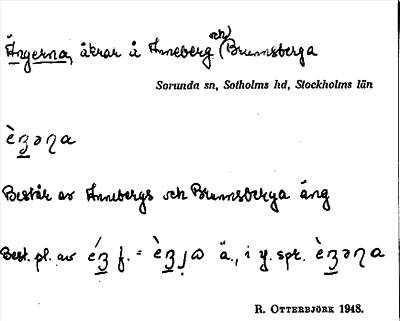 och)
Ängerna, åkrar å Anneberg (Brunnsberga
Sorunda sn, Sotholms hd, Stockholms län
Består av Annebergs och Brunnsberga äng
Best. pl. av f. = ä., i y. spr.
R. Otterbjörk 1948.